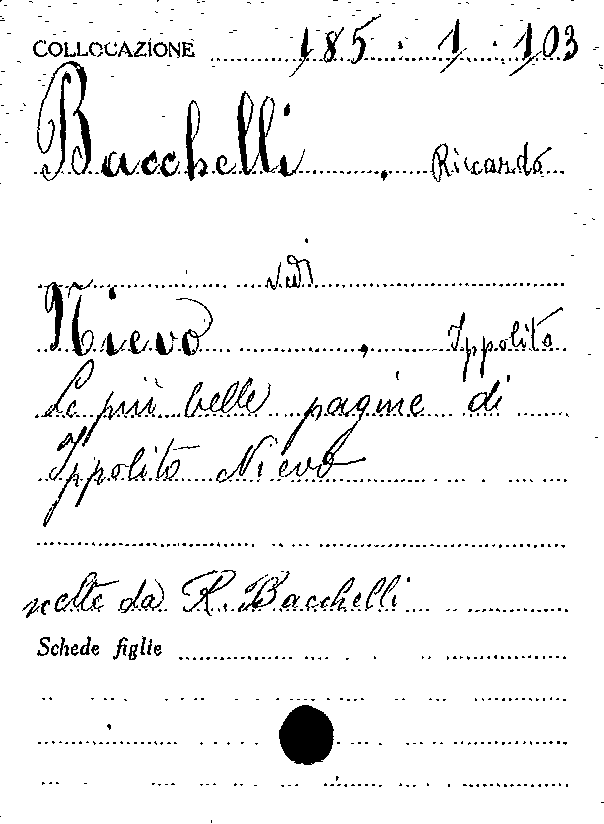 COLLOCAZIONE 185 . 1 . 103
Bacchelli , Riccardo
vedi
Nievo , Ippolito
Le più belle pagine di
Ippolito Nievo
scelte da R. Bacchelli
Schede figlie